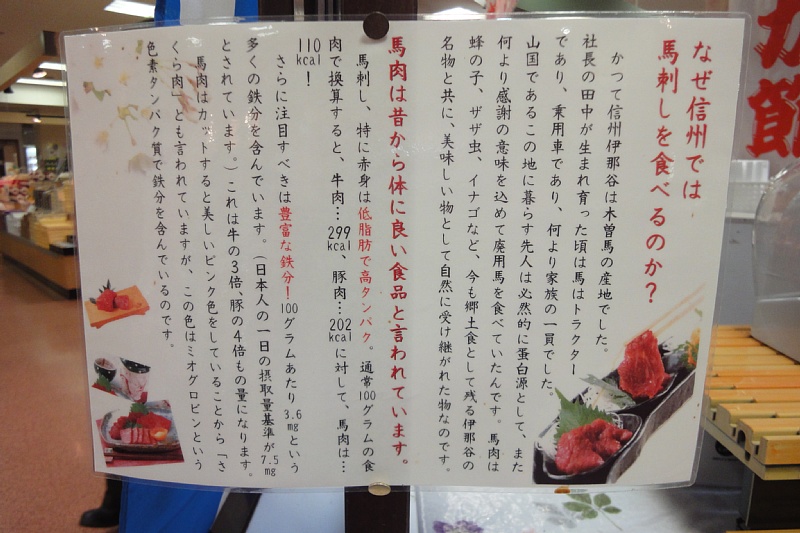 なぜ信州では
馬刺しを食べるのか？
かつて信州伊那谷は木曽馬の産地でした。
社長の田中が生まれ育った頃は馬はトラクター
であり、乗用車であり、何より家族の一員でした。
山国であるこの地に暮らす先人は必然的に蛋白源として、また
何より感謝の意味を込めて廃用馬を食べていたんです。馬肉は
蜂の子、ザザ虫、イナゴなど、今も郷土食として残る伊那谷の
名物と共に、美味しい物として自然に受け継がれた物なのです。
馬肉は昔から体に良い食品と言われています。
馬刺し、特に赤身は低脂肪で高タンパク。通常100グラムの食
肉で換算すると、牛肉…299kcal、豚肉…202kcalに対して、馬肉は…
110kcal！
さらに注目すべきは豊富な鉄分！100グラムあたり3.6mgという
多くの鉄分を含んでいます。（日本人の一日の摂取量基準が7.5mg
とされています。）これは牛の3倍、豚の4倍もの量になります。
馬肉はカットすると美しいピンク色をしていることから「さ
くら肉」とも言われていますが、この色はミオグロビンという
色素タンパク質で鉄分を含んでいるのです。